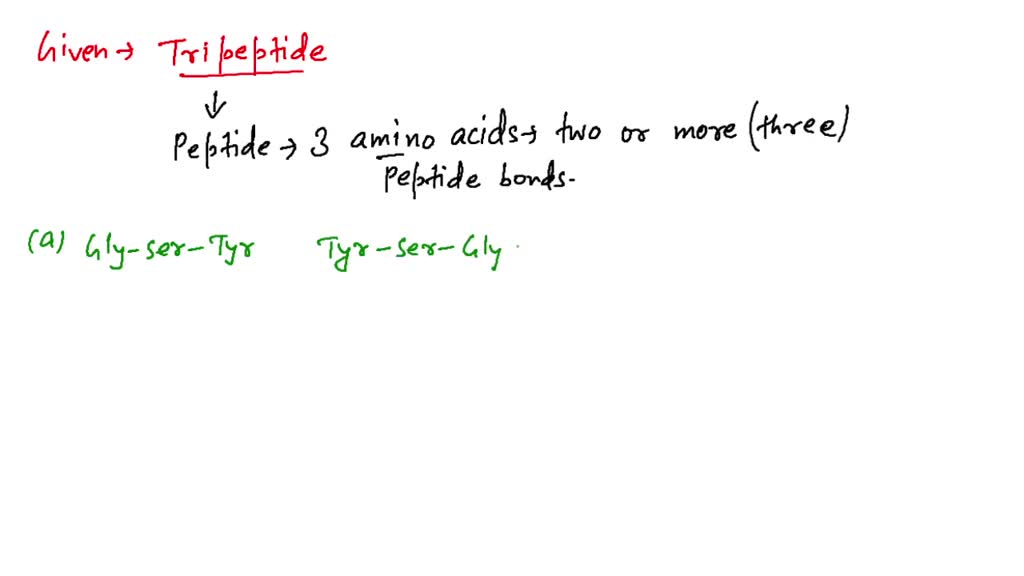 Given → Tripeptide
↓
Peptide → 3 amino acids → two or more (three)
Peptide bonds.
(a) Gly-Ser-Tyr Tyr-Ser-Gly